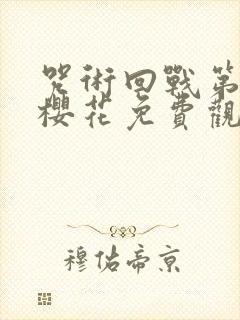 咒術回戰第
櫻花免費觀
穆佑帝京